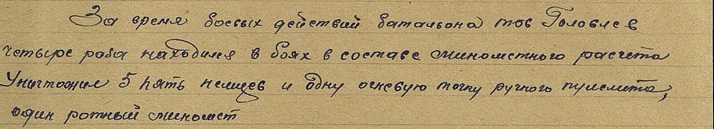 За время боевых действий батальона тов Головлев
четыре раза находился в боях в составе минометного расчета
Уничтожил 5 пять немцев и одну огневую точку ручного пулемета,
один ротный миномет